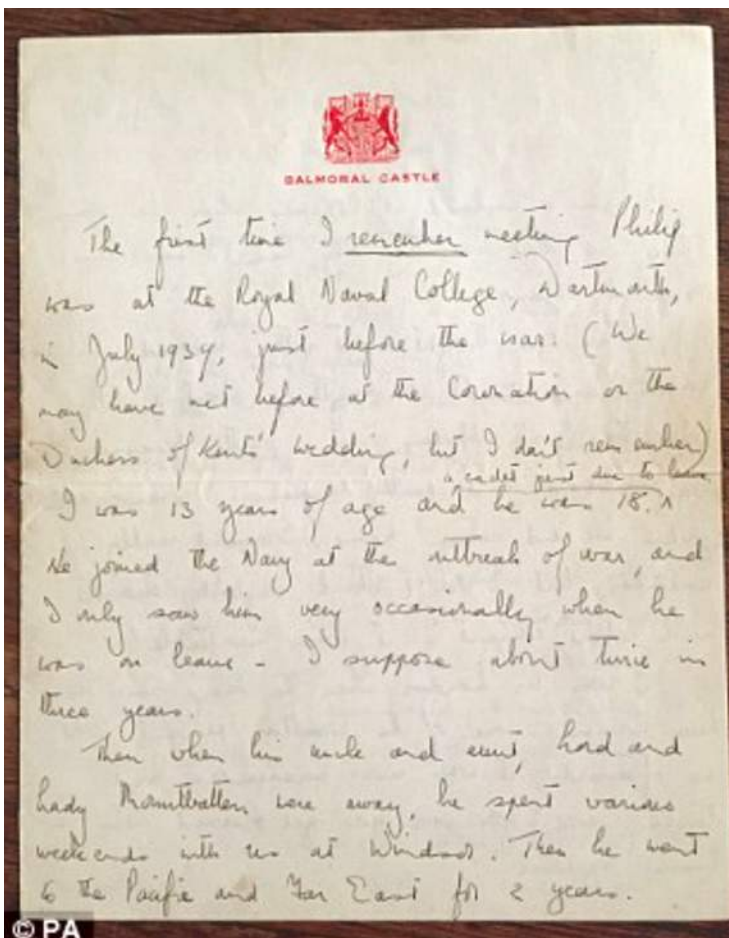 BALMORAL CASTLE
The first time I remember meeting Philip
was at the Royal Naval College, Dartmouth,
in July 1939, just before the war. (We
may have met before at the Coronation or the
Duchess of Kent's wedding, but I don't remember)
a cadet just due to leave
I was 13 years of age and he was 18. ^
He joined the Navy at the outbreak of war, and
I only saw him very occasionally when he
was on leave - I suppose about twice in
three years.
Then when his uncle and aunt, Lord and
Lady Mountbatten were away, he spent various
weekends with us at Windsor. Then he went
to the Pacific and Far East for 2 years.
© PA